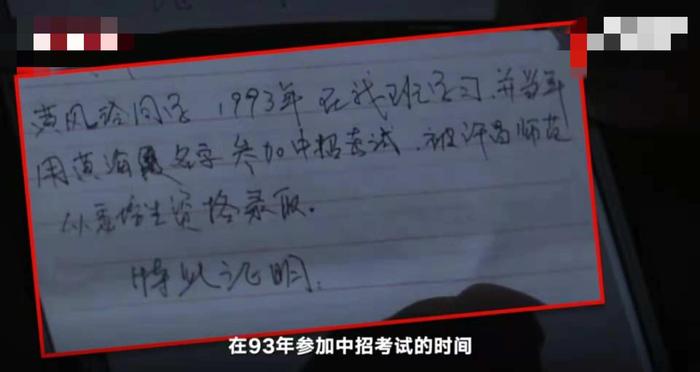 黄风玲同学 1993年在我班学习,并当年
用黄海名字参加中招考试.被许昌师范
以委培生资格录取.
特此证明.
在93年参加中招考试的时间